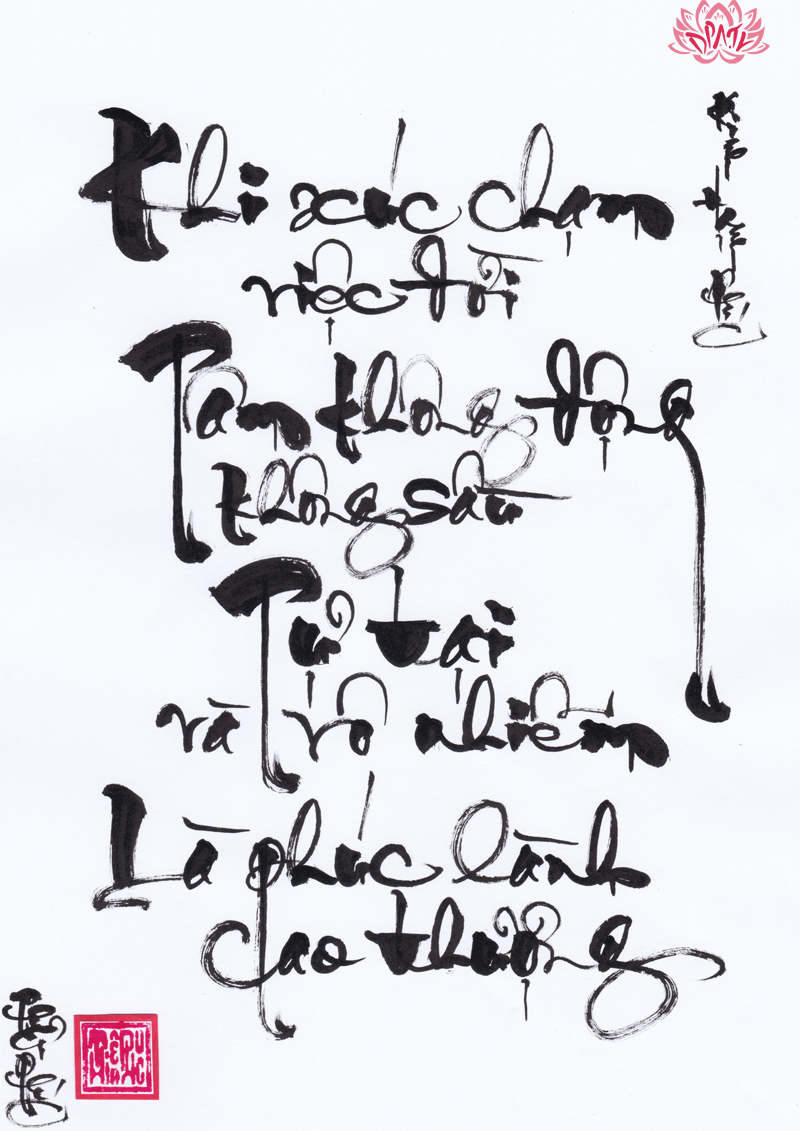 Khi xúc chạm
việc đời
Tâm không động
không sầu
Tự tại
và vô nhiễm
Là phúc lành
cao thượng